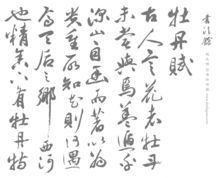 牡丹賦
古人言花者牡丹
未嘗與焉蓋遁乎
深山自幽而著以為
貴重所知花則何遇
焉天后之鄉西河
也精舍下有牡丹特